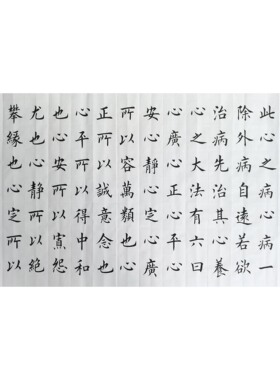 此心之病心病一
除外病自遠若欲
治病先治其心養
心之大法有六曰
心廣心正心平心
安心靜心定心廣
所以容萬類也心
正所以誠意念也
心平所以得中和
也心安所以寡怨
尤也心靜所以絕
攀緣也心定所以